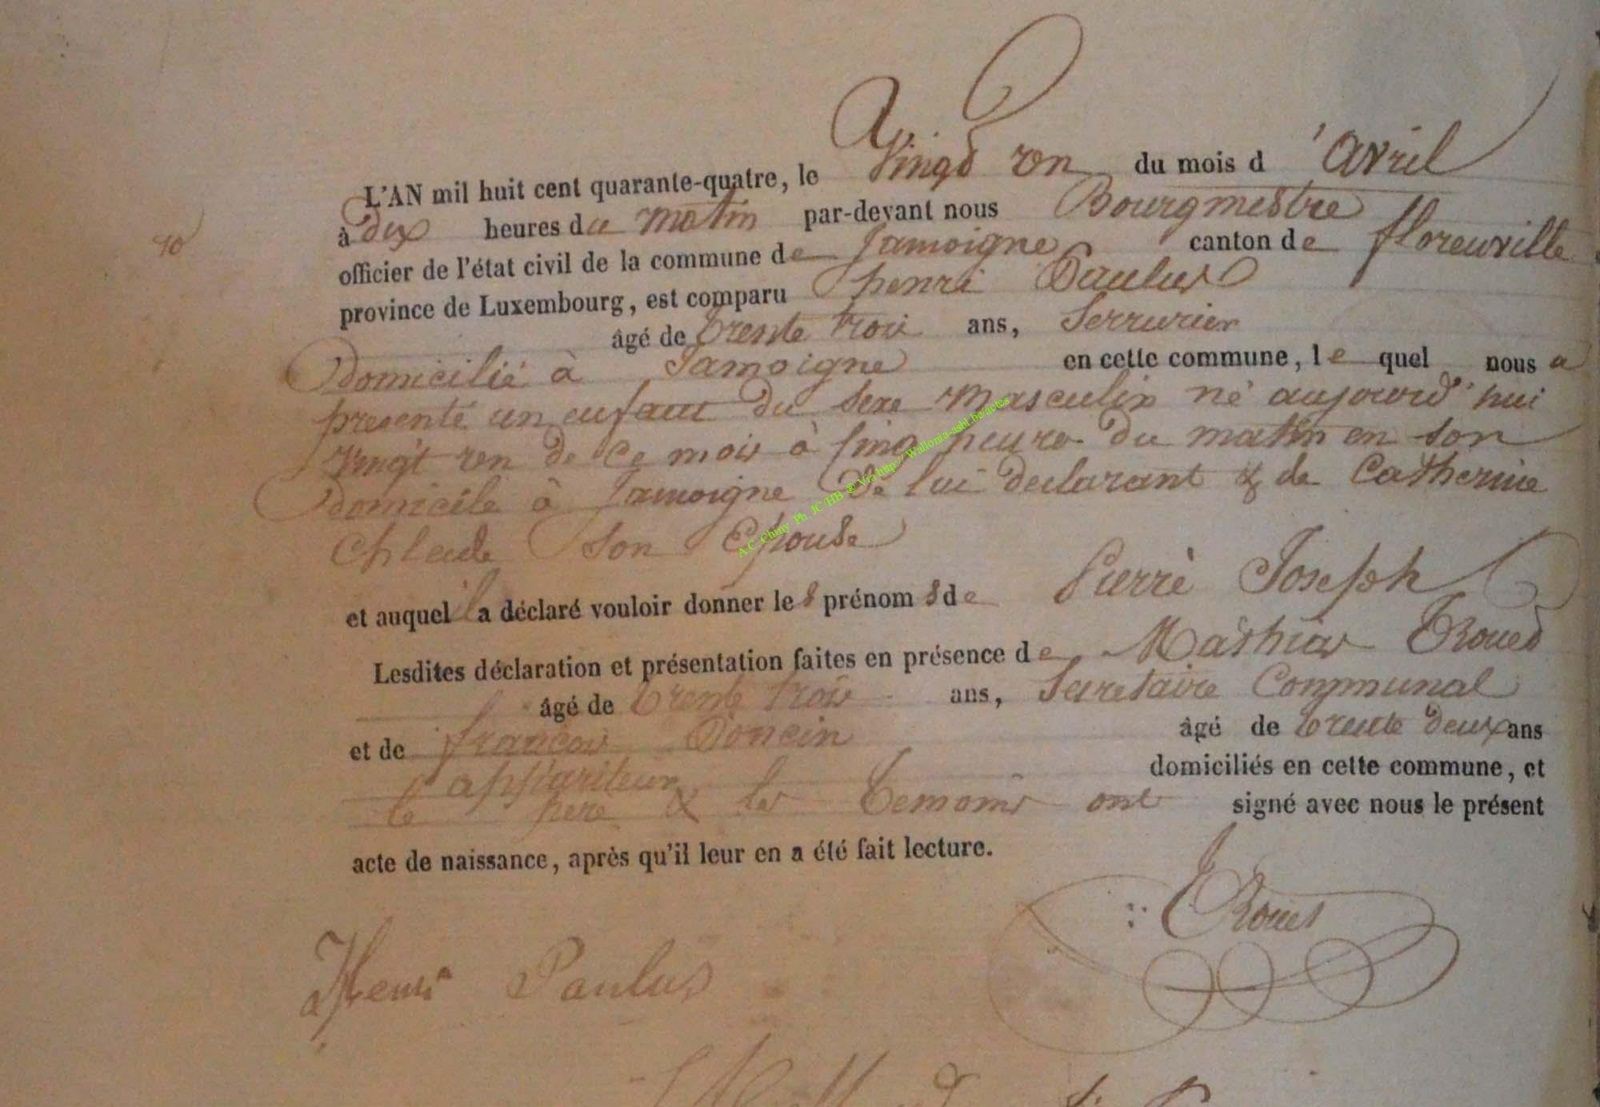 L'AN mil huit cent quarante-quatre, le Vingt un du mois d'avril
à dix heures du matin par-devant nous Bourgmestre
officier de l'état civil de la commune de Jamoigne canton de florenville
province de Luxembourg, est comparu henri Paulus
âgé de trente trois ans, Serrurier
10
Domicilié à Jamoigne en cette commune, lequel nous a
presenté un enfant du sexe masculin né aujourd'hui
vingt un de ce mois à Cinq heure du matin en son
domicile à Jamoigne de lui declarant & de Catherine
son Epouse
et auquel il a déclaré vouloir donner les prénoms de Pierre Joseph
Lesdites déclaration et présentation faites en présence de Mathias Troues
âgé de trente trois ans, Secretaire Communal
et de francois Poncin âgé de trente deux ans
appariteur domiciliés en cette commune, et
le pere & les temoins ont signé avec nous le présent
acte de naissance, après qu'il leur en a été fait lecture.
Troues
Henri Paulus
A.C. Chiny Ph. JC/HB & Via http://Wallonia-asbl.be/actes